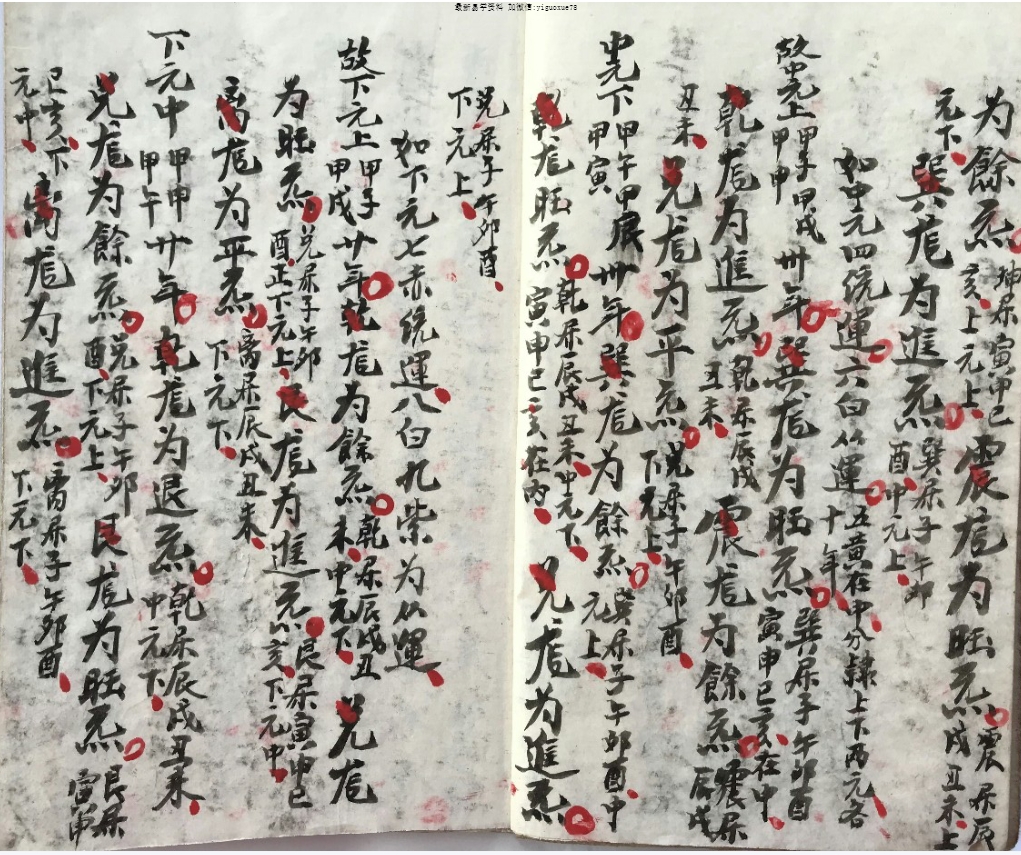 最新易学资料 加微信:yiguoxue78
为餘炁 坤居寅申巳
亥上元上 震㡳为旺炁 震居辰
戌丑未上
元下 巽㡳为進炁 巽居子午卯
酉中元上
如中元四统運六白从運 五黄在中分隸上下两元各
十年
故中元上 甲子甲戌
甲申 卅年巽㡳为旺炁 巽居子午卯酉
寅申巳亥在中
乾㡳为進炁 乾居辰戌
丑未 震㡳为餘炁 震居
辰戌
丑未 兑㡳为平炁 兑居子午卯酉
下元上
中元下 甲午甲辰
甲寅 卅年巽㡳为餘炁 巽居子午卯酉中
元上
乾㡳旺炁 乾居辰戌丑未中元下
寅申巳亥在内 兑㡳为進炁
兑居子午卯酉
下元上
如下元七赤统運八白九紫为从運
故下元上 甲子
甲戌 廿年乾㡳为餘炁 乾居辰戌丑
未中元下 兑㡳
为旺炁 兑居子午卯
酉正下元上 艮㡳为進炁 艮居寅申巳
亥下元中
离㡳为平炁 离居辰戌丑未
下元下
下元中 甲申
甲午 廿年乾㡳为退炁 乾居辰戌丑未
中元下
兑㡳为餘炁 兑居子午卯
酉下元上 艮㡳为旺炁 艮居
寅申
巳亥下
元中 离㡳为進炁 离居子午卯酉
下元下